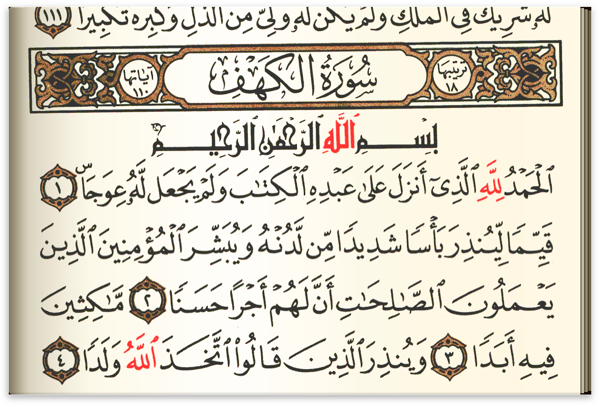 لَّهُۥ شَرِيكٌ فِى ٱلْمُلْكِ وَلَمْ يَكُن لَّهُۥ وَلِىٌّ مِّنَ ٱلذُّلِّ وَكَبِّرْهُ تَكْبِيرًۢا ١١١
ترتيبها ١٨ سُورَةُ الكَهْفِ آياتها ١١٠
بِسْمِ ٱللَّهِ ٱلرَّحْمَٰنِ ٱلرَّحِيمِ
ٱلْحَمْدُ لِلَّهِ ٱلَّذِىٓ أَنزَلَ عَلَىٰ عَبْدِهِ ٱلْكِتَٰبَ وَلَمْ يَجْعَل لَّهُۥ عِوَجَاۜ ١
قَيِّمًا لِّيُنذِرَ بَأْسًا شَدِيدًا مِّن لَّدُنْهُ وَيُبَشِّرَ ٱلْمُؤْمِنِينَ ٱلَّذِينَ
يَعْمَلُونَ ٱلصَّٰلِحَٰتِ أَنَّ لَهُمْ أَجْرًا حَسَنًا ٢ مَّٰكِثِينَ
فِيهِ أَبَدًا ٣ وَيُنذِرَ ٱلَّذِينَ قَالُوا۟ ٱتَّخَذَ ٱللَّهُ وَلَدًا ٤